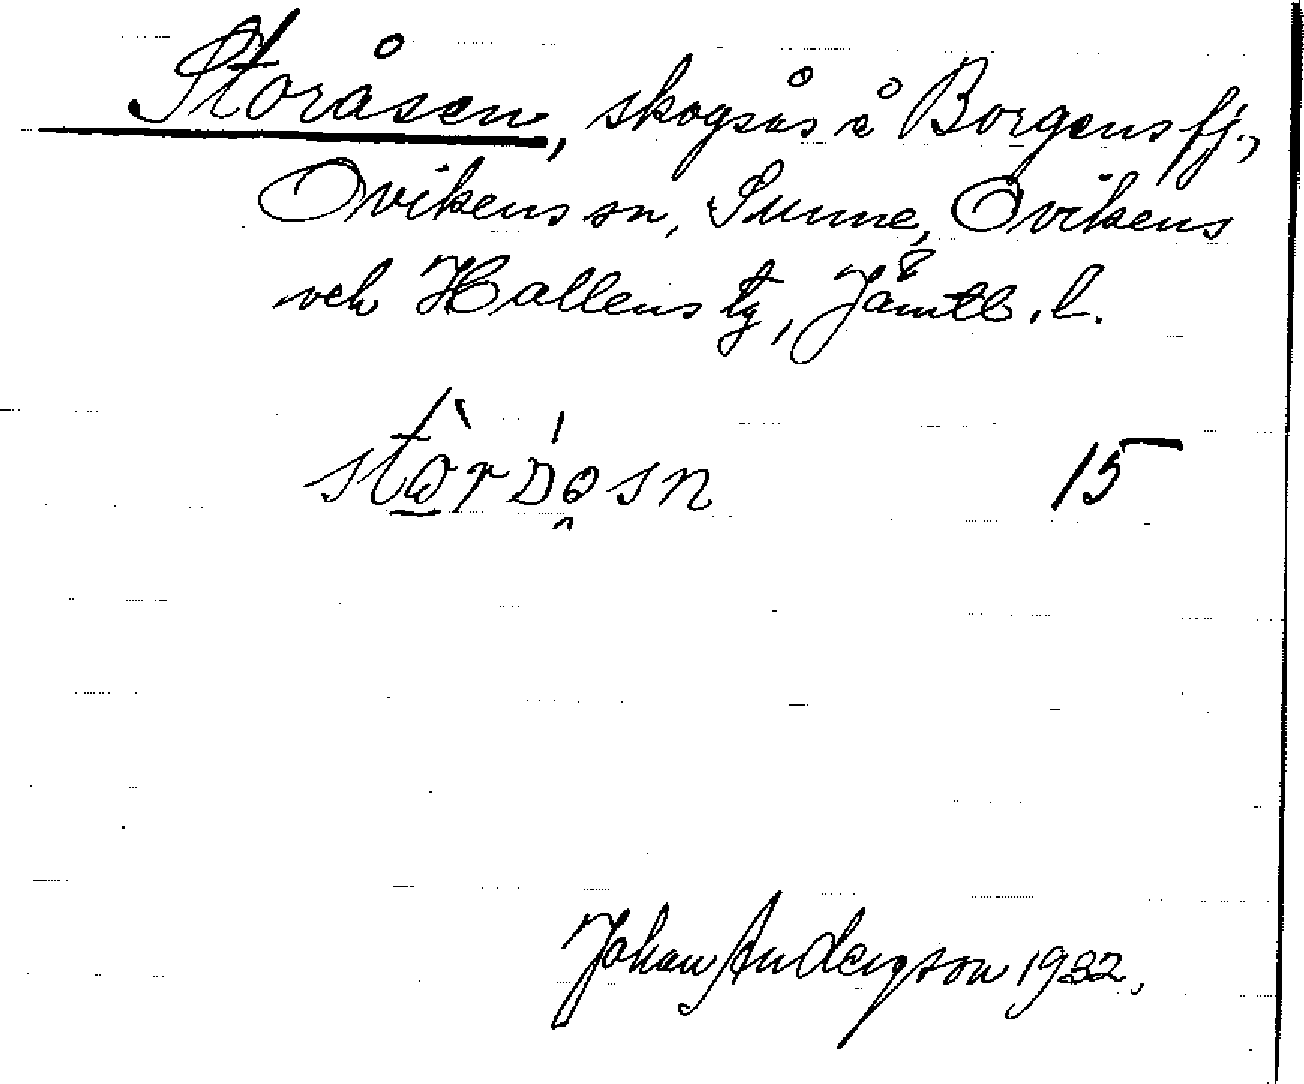 Storåsen, skogsås å Borgens fj.,
Ovikens sn, Sunne, Ovikens
och Hallens tg, Jämtl. l.
15
Johan Anderson 1932.